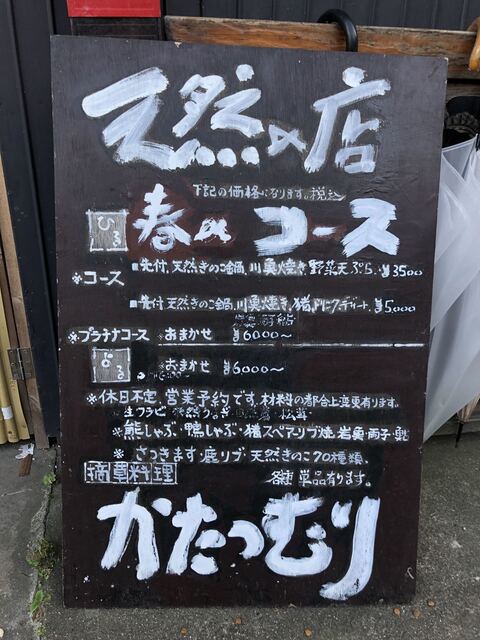 天然の店
下記の価格になります。税込
ひる 春のコース
※コース ■先付、天然きのこ鍋、川魚焼き 野菜天ぷら、¥3500
■先付、天然きのこ鍋、川魚焼き、猪 デザート、¥5,000
※プラチナコース ※おまかせ ¥6000〜
よる ※おまかせ ¥6000〜
※休日不定、営業予約です。材料の都合上変更有ります。
生ワラビ 天然うなぎ 松茸
※熊しゃぶ・鴨しゃぶ・猪スペアーリブ焼・岩魚・雨子・鮎
※さつきます・鹿リブ・天然きのこ70種類、
摘草料理 各種 単品有ります。
かたつむり